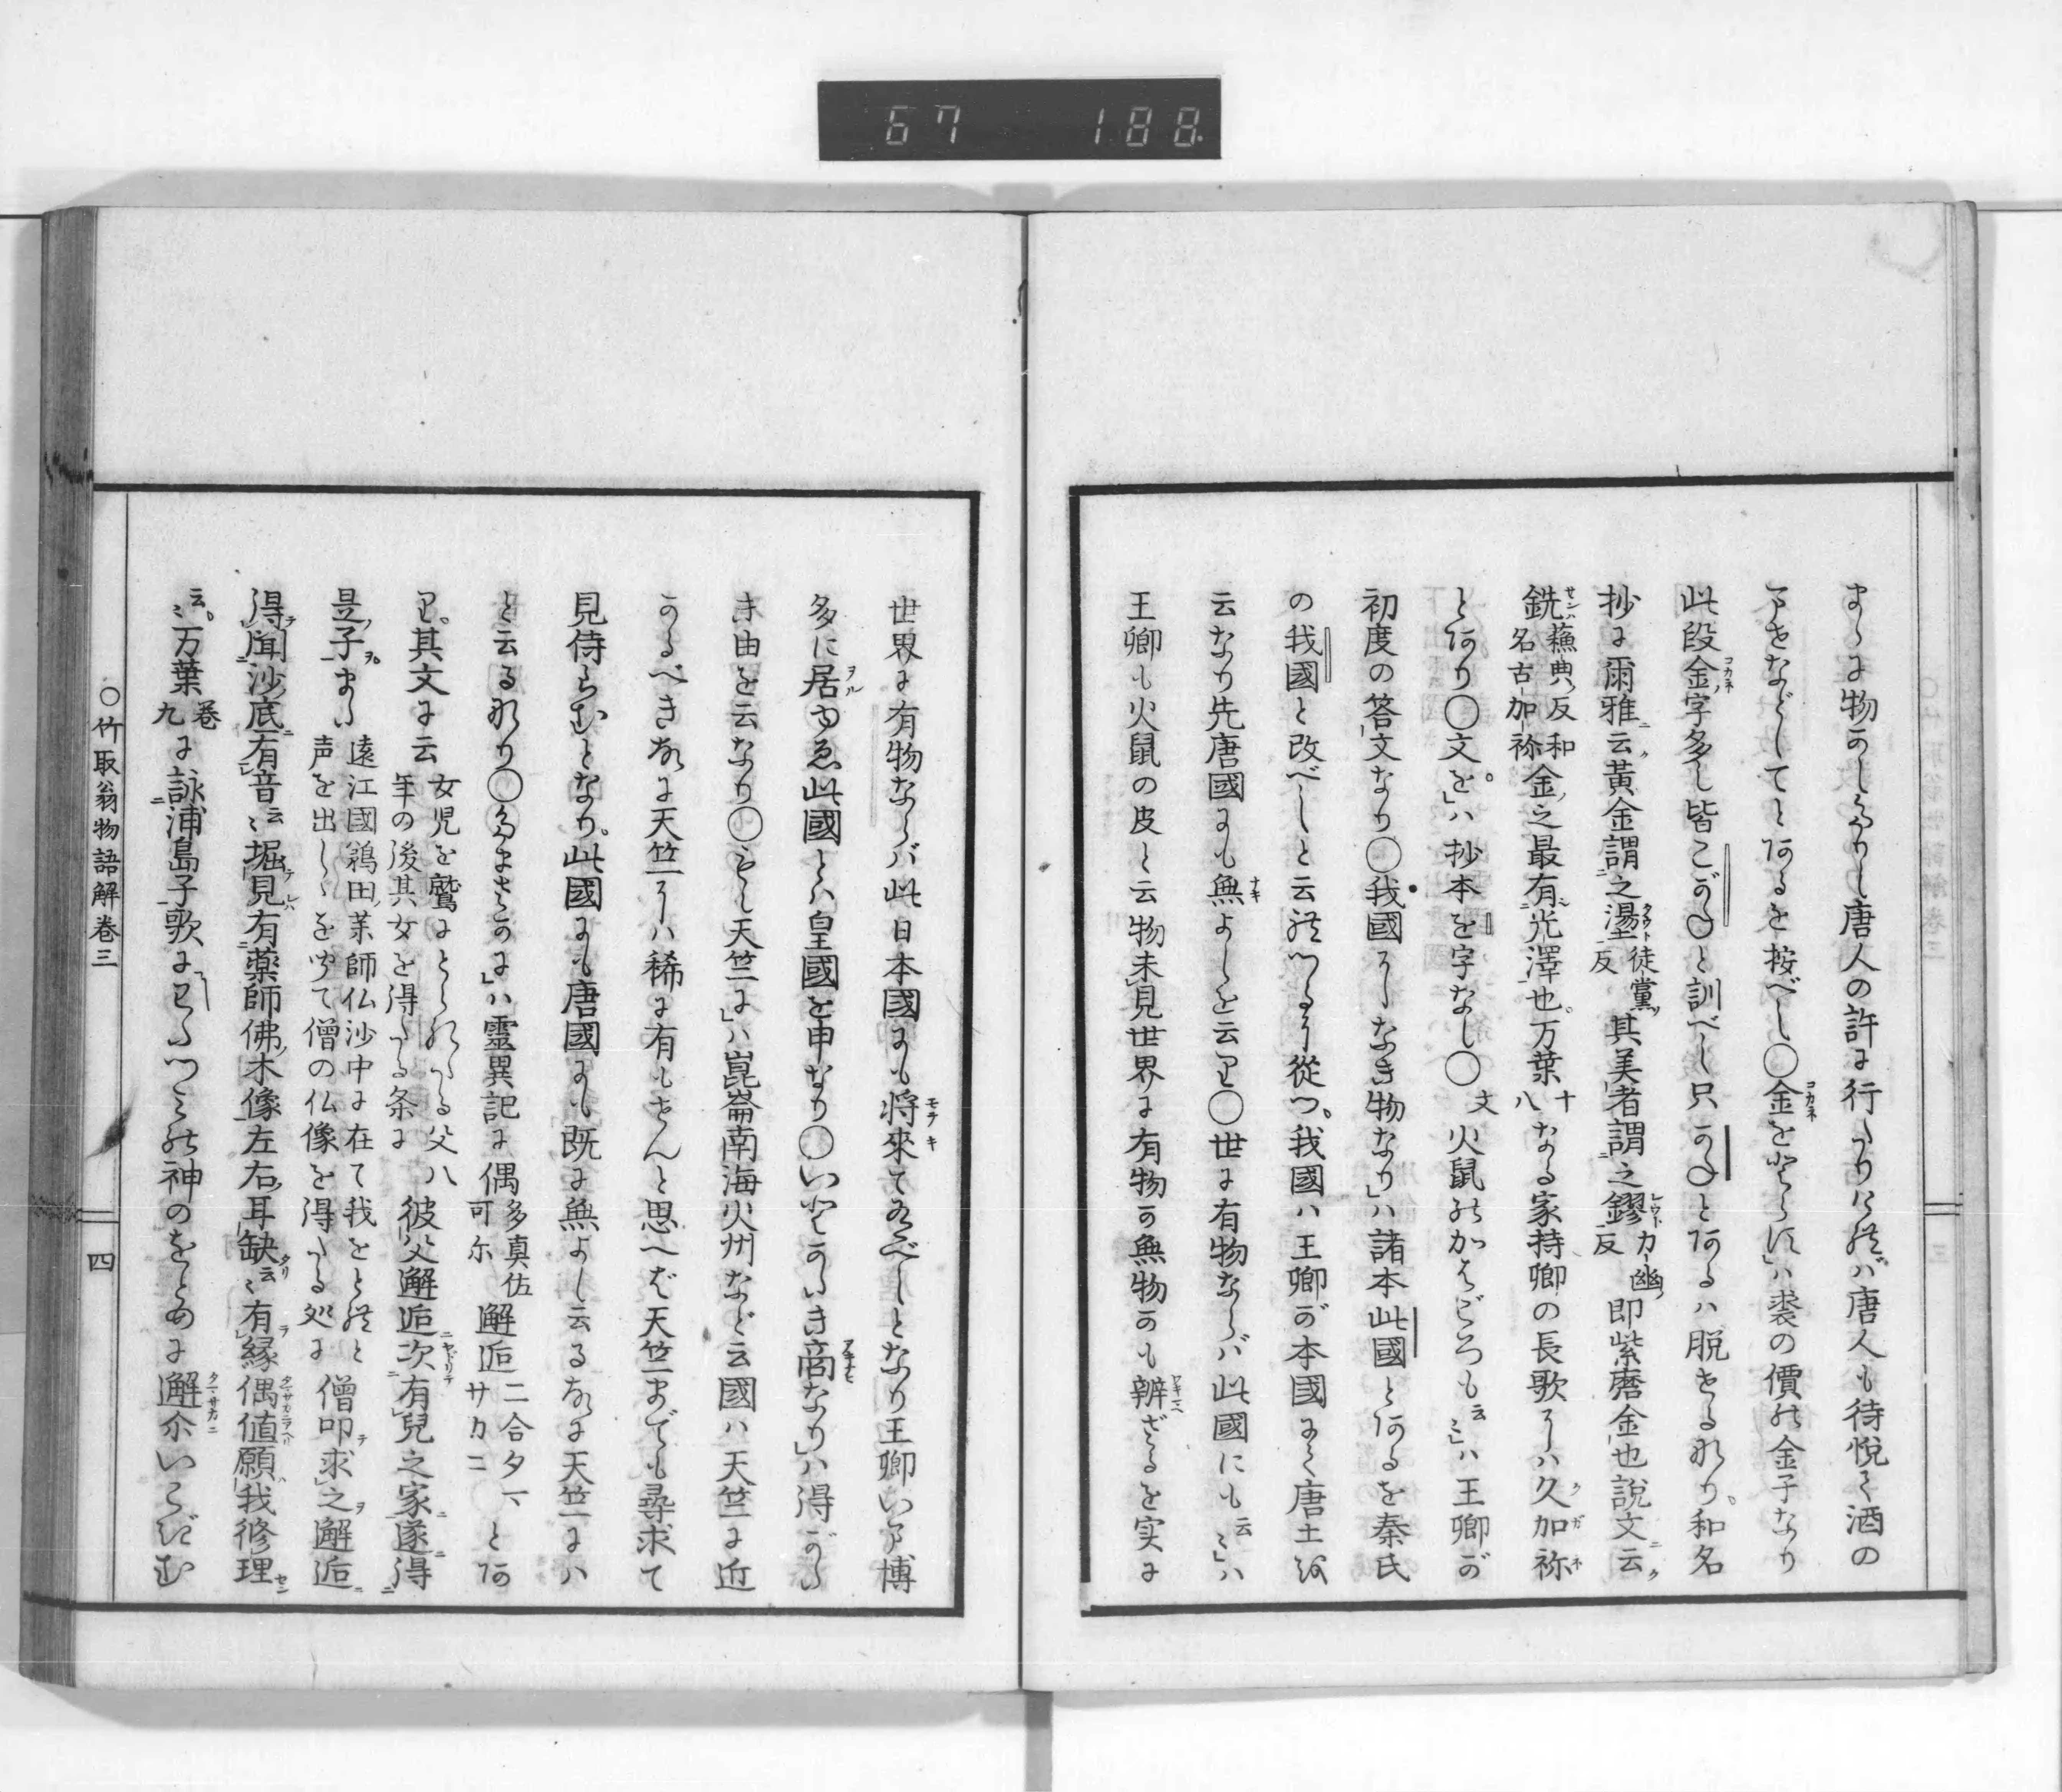 67 188
まゝに物のしたりし唐人の許に行たりけれバ唐人も待悦て酒の
下せなどしてとあるを按べし〇金をとらす」ハ裘の價の金子なり
此段金ノ字多し皆こがねと訓べし只かねとあるハ脱せるなり。和名
抄に爾雅ニ云黄金謂之璗徒黨反其美者謂之鏐力幽反即紫磨金也說文ニ云
銑蘓典反和名古加祢金之最有光澤也。万葉十八なる家持卿の長歌にハ久加祢
とあり〇文を」ハ抄本を字なし〇文火鼠のかはごろも云〻」ハ王卿が
初度の答文なり〇我國になき物なり」ハ諸本此國とあるを秦氏
の我國と改べしと云れつるに從つ。我國ハ王卿が本國にて唐土を
云なり先唐國にも無よしを云り〇世に有物ならバ此國にも云〻」ハ
王卿も火鼠の皮と云物未見世界に有物か無物かも辨ざるを実に
世界に有物ならバ此日本國にも将來てあべしとなり王卿いま博
多に居ゆゑ此國とハ皇國を申なり〇いとかたき商なり」ハ得がた
き由を云なり〇もし天竺に」ハ崑崙南海火州など云國ハ天竺に近
かるべき故に天竺にハ稀に有もせんと思へば天竺までも尋求て
見侍らむとなり。此國にも唐國にも既に無よし云る故に天竺にハ
と云るなり〇たまさかに」ハ靈異記に偶多真佐可尓解逅二合タマサカニとあ
り。其文に云女児を鷲にとられたる父八年の後其女を得たる条に彼父解逅次有兒之家遂得
是子また遠江國鵜田里薬師仏沙中に在て我をとれと声を出しゝを聞て僧の仏像を得たる処に僧叩求之邂逅
得聞沙底有音云〻堀見有薬師佛木像左右耳缺云〻有縁偶値願我修理
云〻。万葉巻九に詠浦島子歌にわたつみの神のをとめに邂尒いこぎむ
〇竹取翁物語解巻三
四